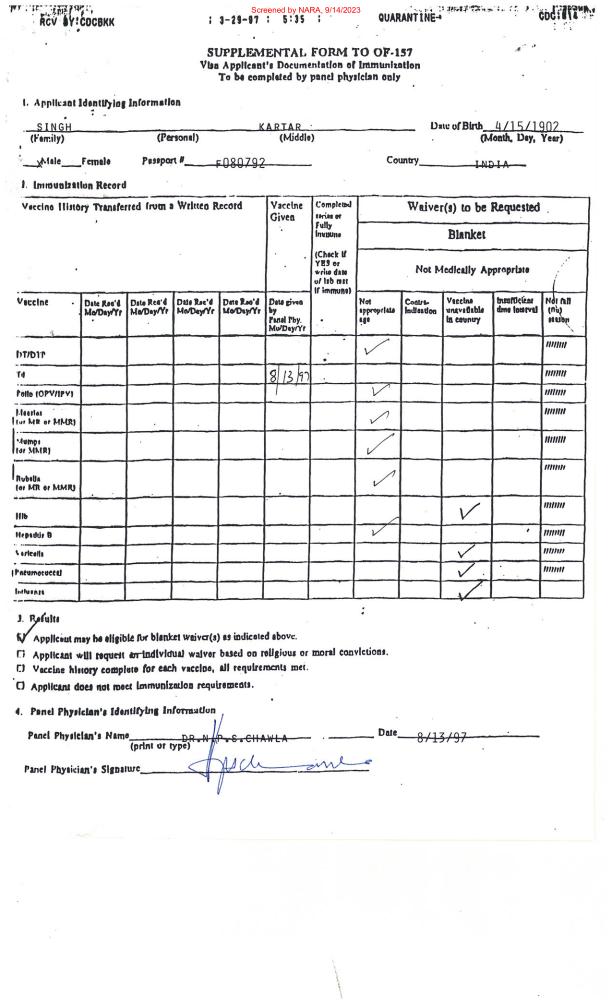 Screened by NARA, 9/14/2023
RCV BY:CDCBKK : 3-29-97 : 5:35 : QUARANTINE→
SUPPLEMENTAL FORM TO OF-157
Visa Applicant's Documentation of Immunization
To be completed by panel physician only
1. Applicant Identifying Information
SINGH KARTAR Date of Birth 4/15/1902
(Family) (Personal) (Middle) (Month, Day, Year)
xMale Female Passport # F080792 Country INDIA
Immunization Record
Vaccine History Transferred from a Written Record
Vaccine Given
Completed series or Fully Immune
(Check if YES or write date of lab test if immune)
Waiver(s) to be Requested
Blanket
Not Medically Appropriate
Vaccine
Date Rec'd Mo/Day/Yr
Date Rec'd Mo/Day/Yr
Date Rec'd Mo/Day/Yr
Date Rec'd Mo/Day/Yr
Date given by Panel Phy. Mo/Day/Yr
Not appropriate age
Contra-indication
Vaccine unavailable in country
Insufficient time interval
Not fall (flu) season
DT/DTP ✓ ///////
Td 8/13/97 ///////
Polio (OPV/IPV) ✓ ///////
Measles (or MR or MMR) ✓ ///////
Mumps (or MMR) ✓ ///////
Rubella (or MR or MMR) ✓ ///////
Hib ✓ ///////
Hepatitis B ✓ ///////
Varicella ✓ ///////
Pneumococcal ✓ ///////
Influenza ✓
3. Results
Applicant may be eligible for blanket waiver(s) as indicated above.
Applicant will request an individual waiver based on religious or moral convictions.
Vaccine history complete for each vaccine, all requirements met.
Applicant does not meet immunization requirements.
4. Panel Physician's Identifying Information
Panel Physician's Name DR.N.P.S.CHAWLA Date 8/13/97
(print or type)
Panel Physician's Signature